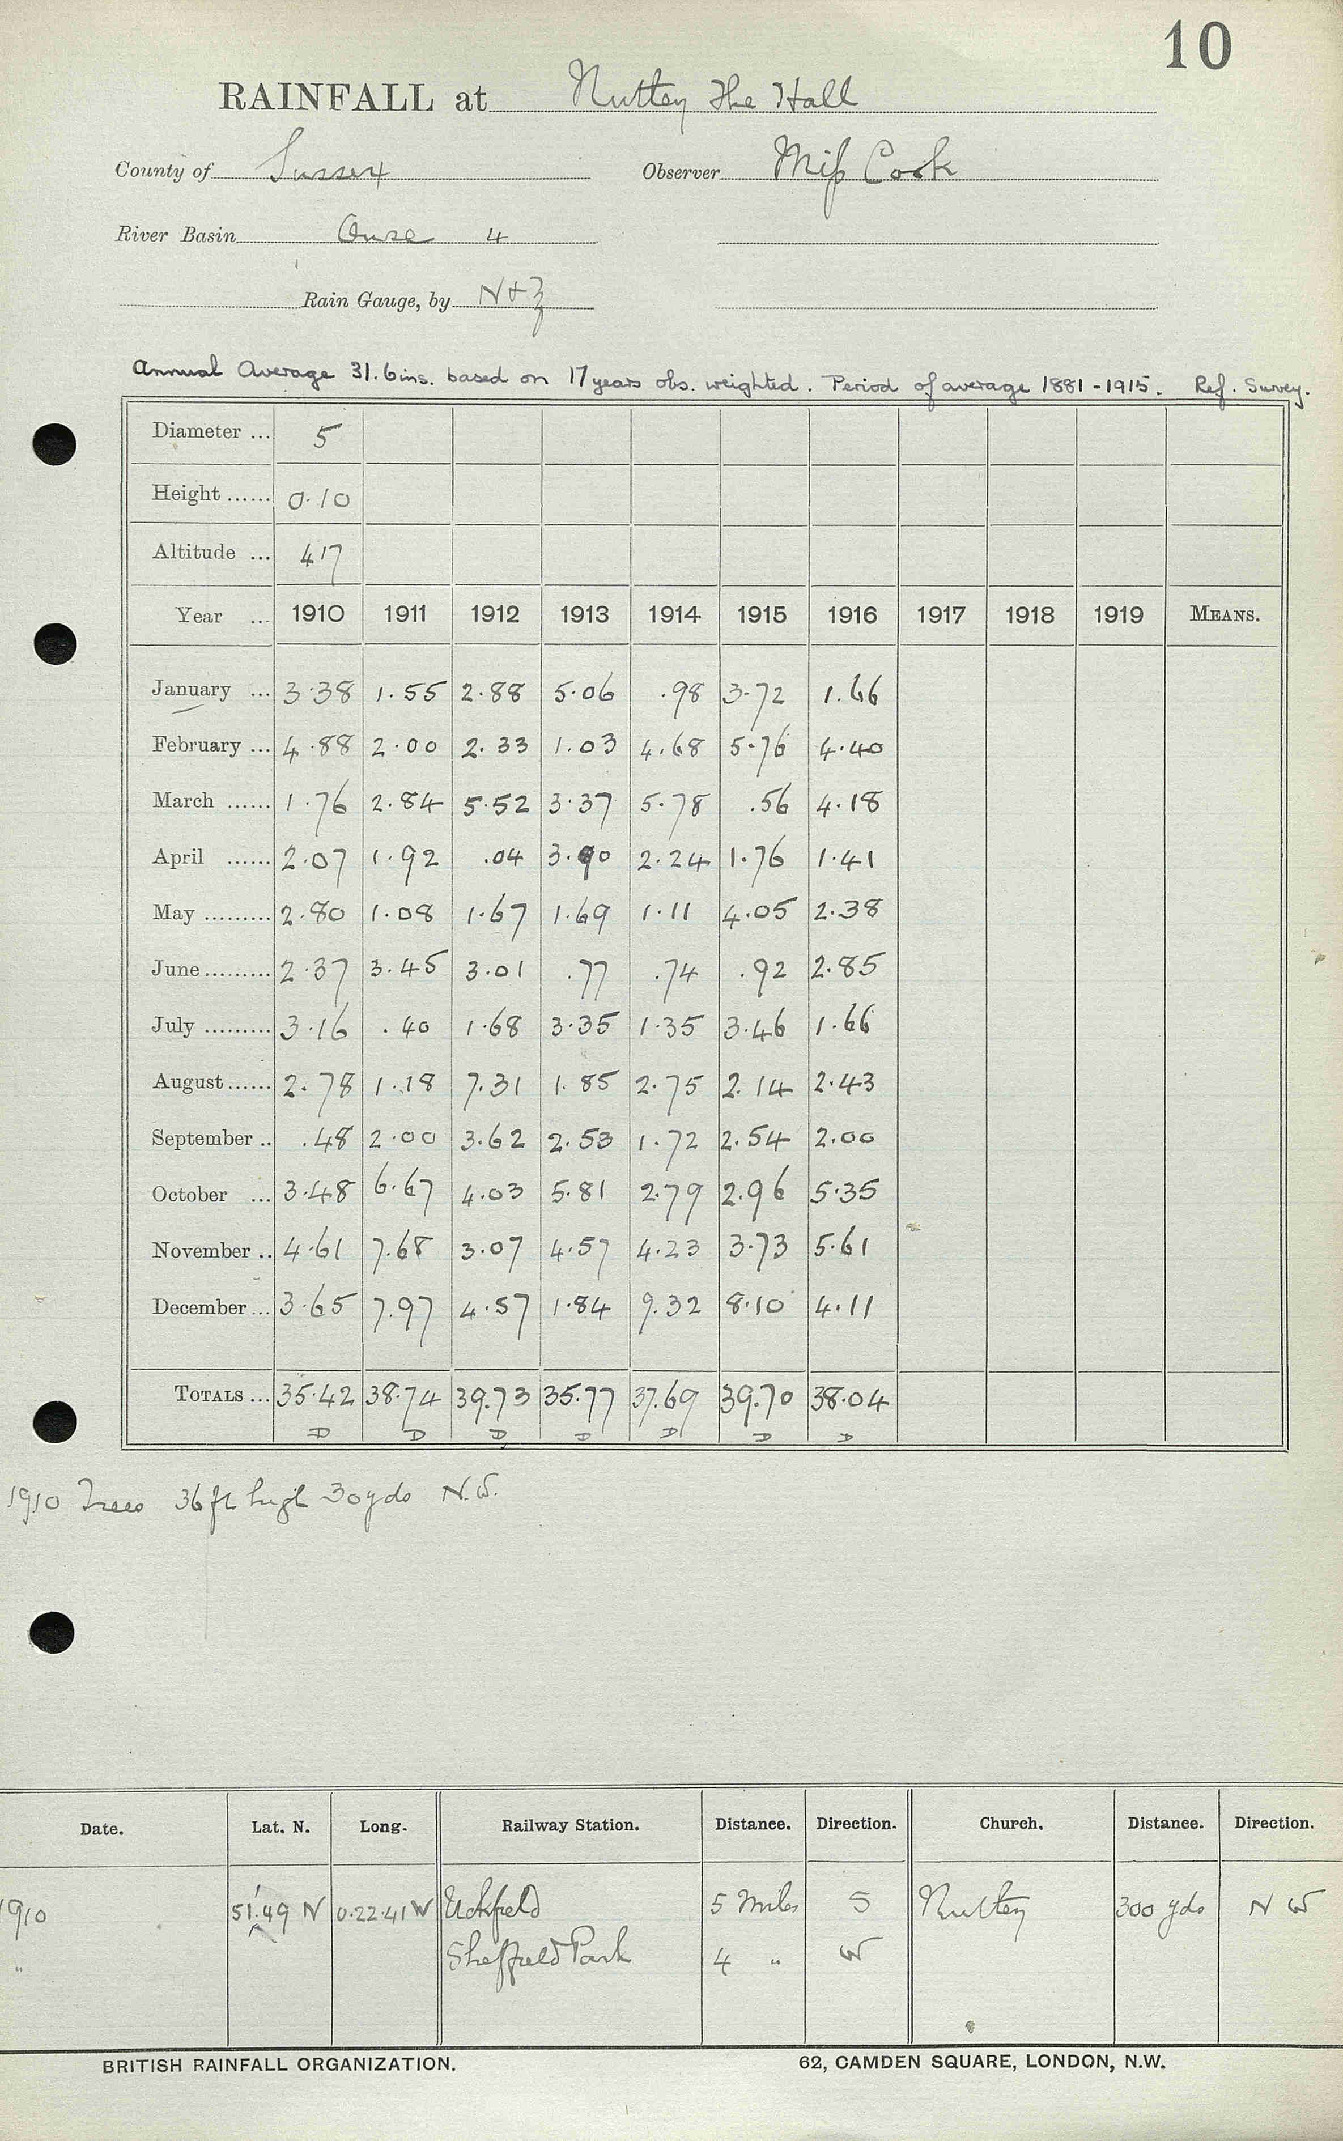 10
RAINFALL at Nutley The Hall
County of Sussex Observer Miss Cook
River Basin Ouse 4
Rain Gauge, by N+Z
Annual Average 31.6 ins. based on 17 years obs. weighted. Period of average 1881-1915. Ref. Survey.
Diameter ... 5
Height ...... 0.10
Altitude ... 417
Year ... 1910 1911 1912 1913 1914 1915 1916 1917 1918 1919 MEANS.
January ... 3.38 1.55 2.88 5.06 .98 3.72 1.66
February ... 4.88 2.00 2.33 1.03 4.68 5.76 4.40
March ...... 1.76 2.84 5.52 3.37 5.78 .56 4.18
April ...... 2.07 1.92 .04 3.90 2.24 1.76 1.41
May ......... 2.80 1.08 1.67 1.69 1.11 4.05 2.38
June ......... 2.37 3.45 3.01 .77 .74 .92 2.85
July ......... 3.16 .40 1.68 3.35 1.35 3.46 1.66
August ...... 2.78 1.18 7.31 1.85 2.75 2.14 2.43
September .. .48 2.00 3.62 2.53 1.72 2.54 2.00
October ... 3.48 6.67 4.03 5.81 2.79 2.96 5.35
November .. 4.61 7.68 3.07 4.57 4.23 3.73 5.61
December ... 3.65 7.97 4.57 1.84 9.32 8.10 4.11
TOTALS ... 35.42 38.74 39.73 35.77 37.69 39.70 38.04
D D D D D D D
1910 Trees 36 ft high 30 yds N.W.
Date. Lat. N. Long. Railway Station. Distance. Direction. Church. Distance. Direction.
1910 51.1.49 N 0.22.41 W Uckfield 5 Miles S Nutley 300 yds N W
" Sheffield Park 4 " W
BRITISH RAINFALL ORGANIZATION. 62, CAMDEN SQUARE, LONDON, N.W.